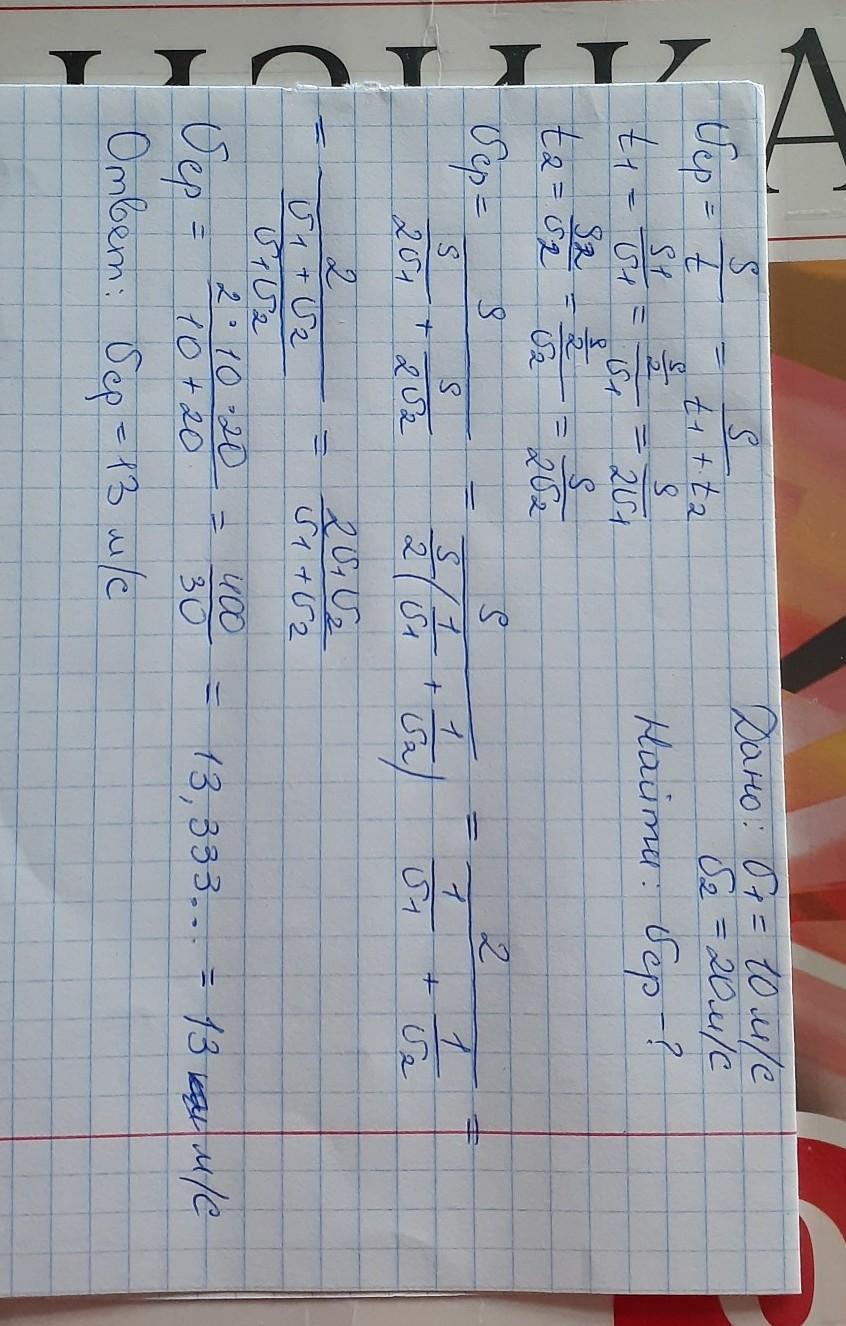 ИЗИКА
Дано: υ1 = 10 м/с
υ2 = 20 м/с
Найти: υср -?
υср = S/t = S/(t1 + t2)
t1 = S1/υ1 = (S/2)/υ1 = S/(2υ1)
t2 = S2/υ2 = (S/2)/υ2 = S/(2υ2)
υср = S/(S/(2υ1) + S/(2υ2)) = S/(S/2(1/υ1 + 1/υ2)) = 2/(1/υ1 + 1/υ2) =
= 2/((υ1 + υ2)/(υ1υ2)) = 2υ1υ2/(υ1 + υ2)
υср = 2·10·20/(10 + 20) = 400/30 = 13,333... = 13 м/с
Ответ: υср = 13 м/с